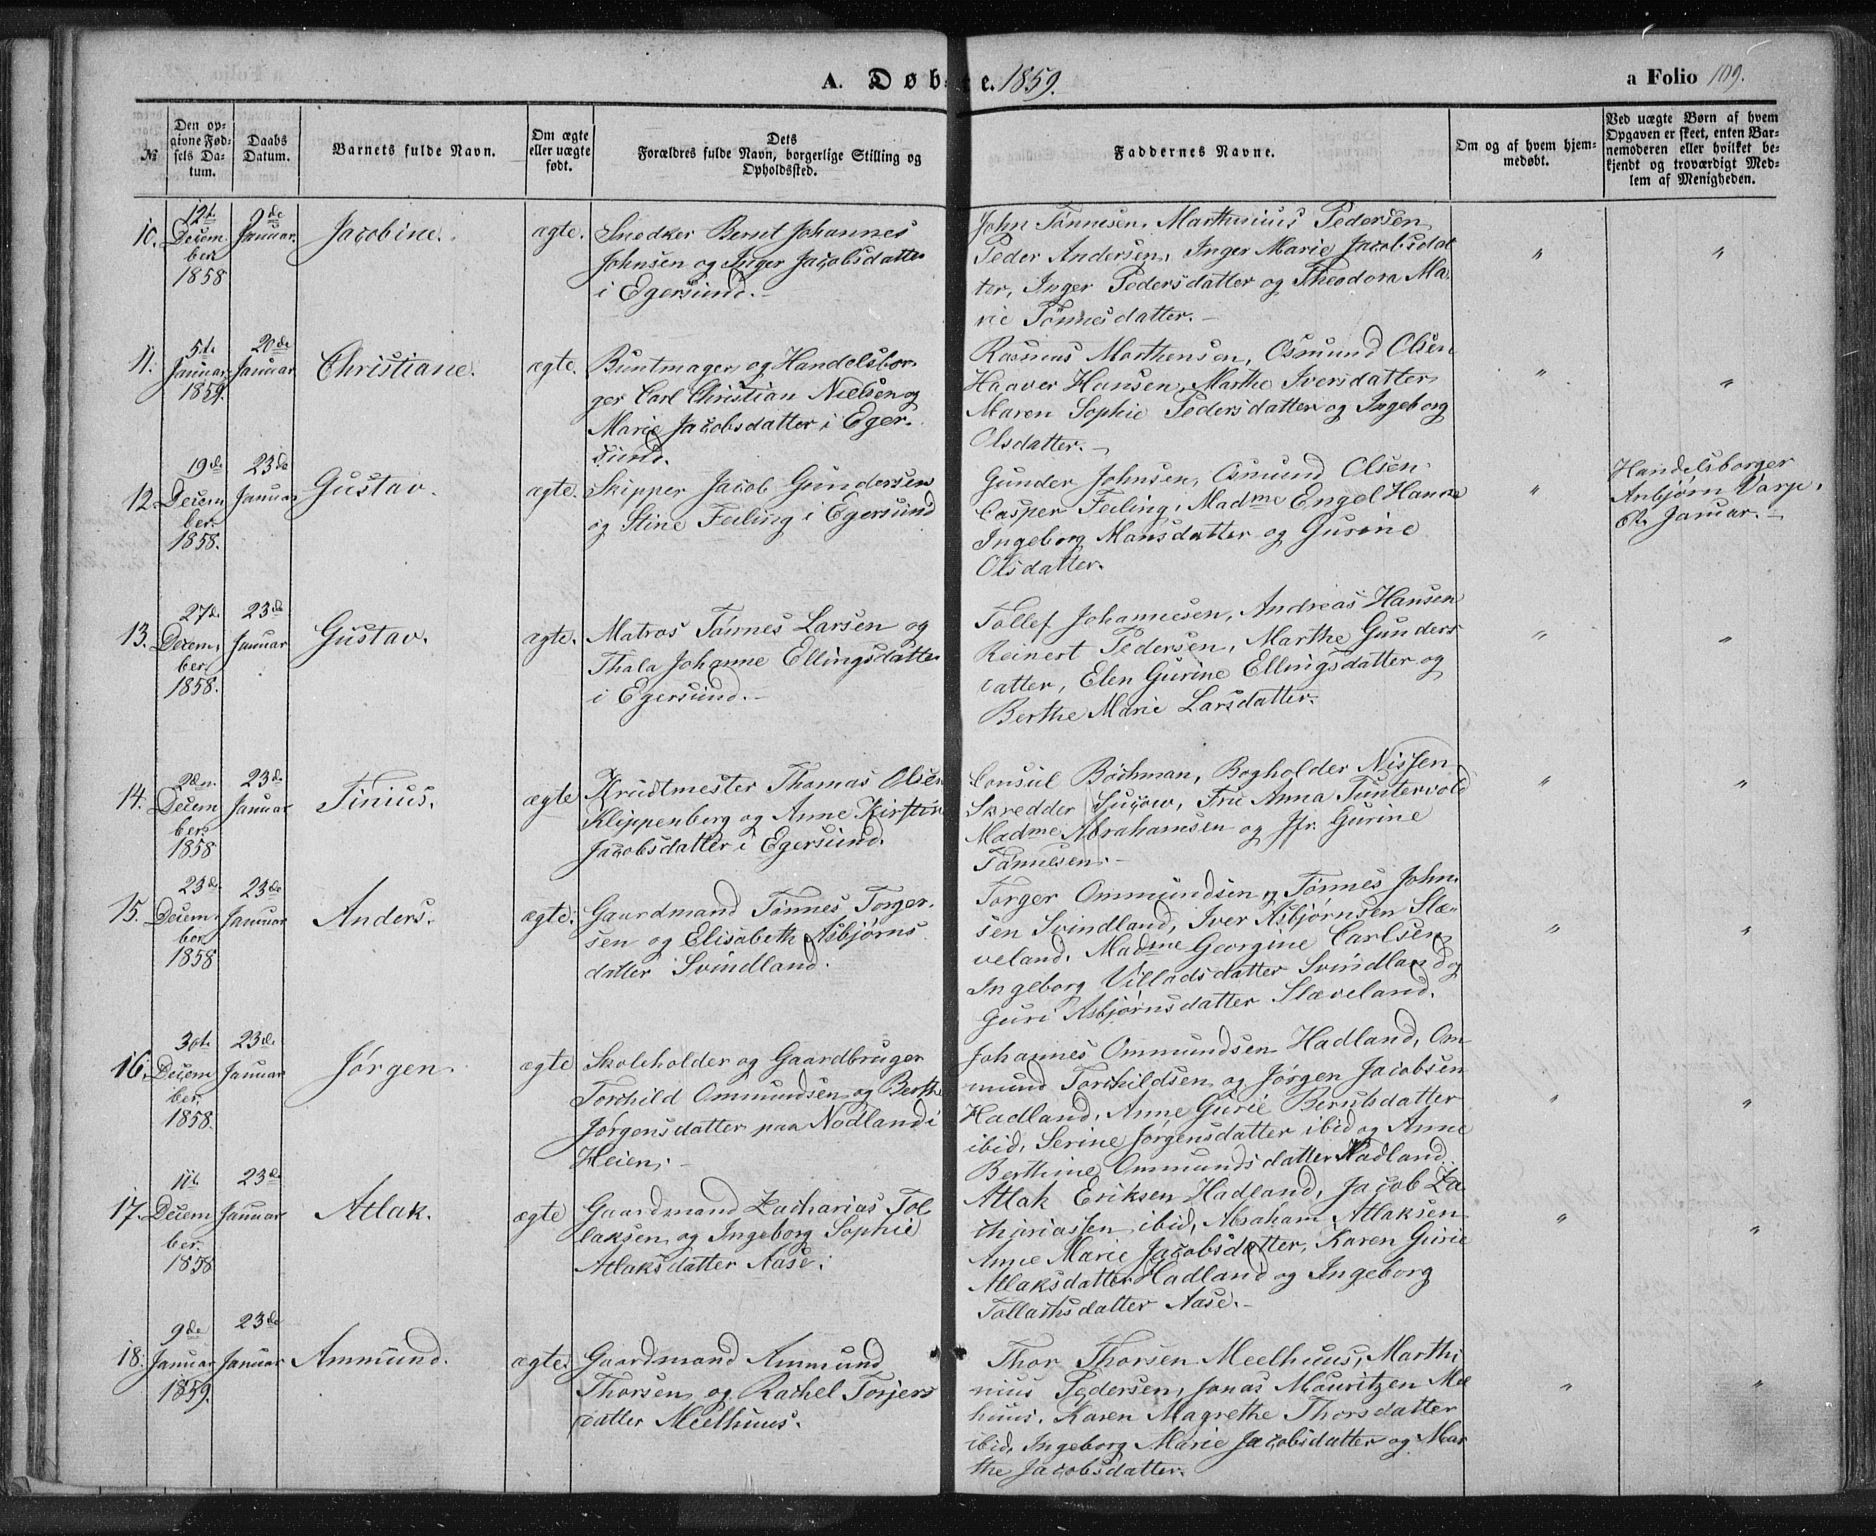 A. Døb e. 1859.
a Folio 109.
№
Den op-
givne Fød-
sels Da-
tum.
Daabs
Datum.
Barnets fulde Navn.
Om ægte
eller uægte
født.
Dets
Forældres fulde Navn, borgerlige Stilling og
Opholdssted.
Faddernes Navne.
Om og af hvem hjem-
medøbt.
Ved uægte Børn af hvem
Opgaven er skeet, enten Bar-
nemoderen eller hvilket be-
kjendt og troværdigt Med-
lem af Menigheden.
10.
12te
Decem
ber
1858
9de
Januar.
Jacobine.
ægte.
Snedker Bernt Johannes
Johnsen og Inger Jacobsdatter
i Egersund.-
John Tønnesen, Marthinius Pedersen
Peder Andersen, Inger Marie Jacobsdat
ter, Inger Pedersdatter og Theodora Ma-
rie Tönnesdatter.-
"
"
11.
5te
Januar
1859.
20de
Januar
Christiane.
ægte.
Buntmager og Handelsbor-
ger Carl Christian Nielsen og
Marie Jacobsdatter i Eger-
sund.
Rasmus Marthensen, Osmund Olsen
Haaver Hansen, Marthe Iversdatter
Maren Sophie Pedersdatter og Ingeborg
Olsdatter.-
"
"
12.
19de
Decem
ber.
1858.
23de
Januar
Gustav.
ægte.
Skipper Jacob Gundersen
og Stine Feiling i Egersund
Gunder Johnsen, Osmund Olsen.
Casper Feiling, Madme Engel Hansen
Ingeborg Mansdatter og Gurine
Olsdatter.
"
Handelsborger
Anbjørn Varp,
6te Januar.-
13.
27de
Decem,
ber
1858.
23de
Januar
Gustav.
ægte.
Matros Tönnes Larsen og
Thala Johanne Ellingsdatter
i Egersund.-
Tollef Johannesen, Andreas Hansen
Reinert Pedersen, Marthe Gunders
datter, Elen Gurine Ellingsdatter og
Berthe Marie Larsdatter.
"
"
14.
2den
Decem
ber
1858
23de
Januar
Tinius.
ægte
Krudtmester Thomas Olsen
Klippenberg og Anne Kirstine
Jacobsdatter i Egersund.
Consul Böchman, Bogholder Nissen
Skredder Sucow, Fru Anna Puntervold
Madme Abrahamsen og Jfr. Gurine
Tönnesen.-
"
"
15.
23de
Decem-
ber
1858
23de
Januar
Anders.
ægte.
Gaardmand Tönnes Torger-
sen og Elisabeth Asbjörns
datter Svindland.
Torger Ommundsen og Tønnes John-
sen Svindland, Iver Asbjørnsen Slæ-
veland, Madme Georgine Carlsen,
Ingeborg Villadsdatter Svindland og
Guri Asbjørnsdatter Slæveland.
"
"
16.
30te
Decem
ber.
1858.
23de
Januar
Jørgen
ægte
Skoleholder og Gaardbruger
Torchild Ommundsen og Berthe
Jørgensdatter paa Nodland i
Heien.-
Johannes Ommundsen Hadland, Om
mund Torchildsen og Jörgen Jacobsen
Hadland, Anne Gurie Berntsdatter
ibid, Serine Jørgensdatter ibid og Anne
Berthine Ommundsdatter Nodland.
"
"
17.
11te
Decem
ber.
1858
23de
Januar
Atlak.
ægte
Gaardmand Zacharias Tol
laksen og Ingeborg Sophie
Atlaksdatter Aase.
Atlak Eriksen Hadland, Jacob Za-
thariassen ibid, Abraham Atlaksen
Anne Marie Jacobsdatter, Karen Gurie
Atlaksdatter Hadland og Ingeborg
Tollachsdatter Aase.-
"
"
18.
9de
Januar
1859.
23de
Januar
Ammund.
ægte.
Gaardmand Ammund
Thorsen og Rachel Torjers
datter Meelhuus.
Thor Thorsen Meelhuus, Marthi
nius Pedersen, Jonas Mauritzen Me
huus, Karen Magrethe Thorsdatter
ibid, Ingeborg Marie Jacobsdatter og Mar
the Jacobsdatter.
"
"